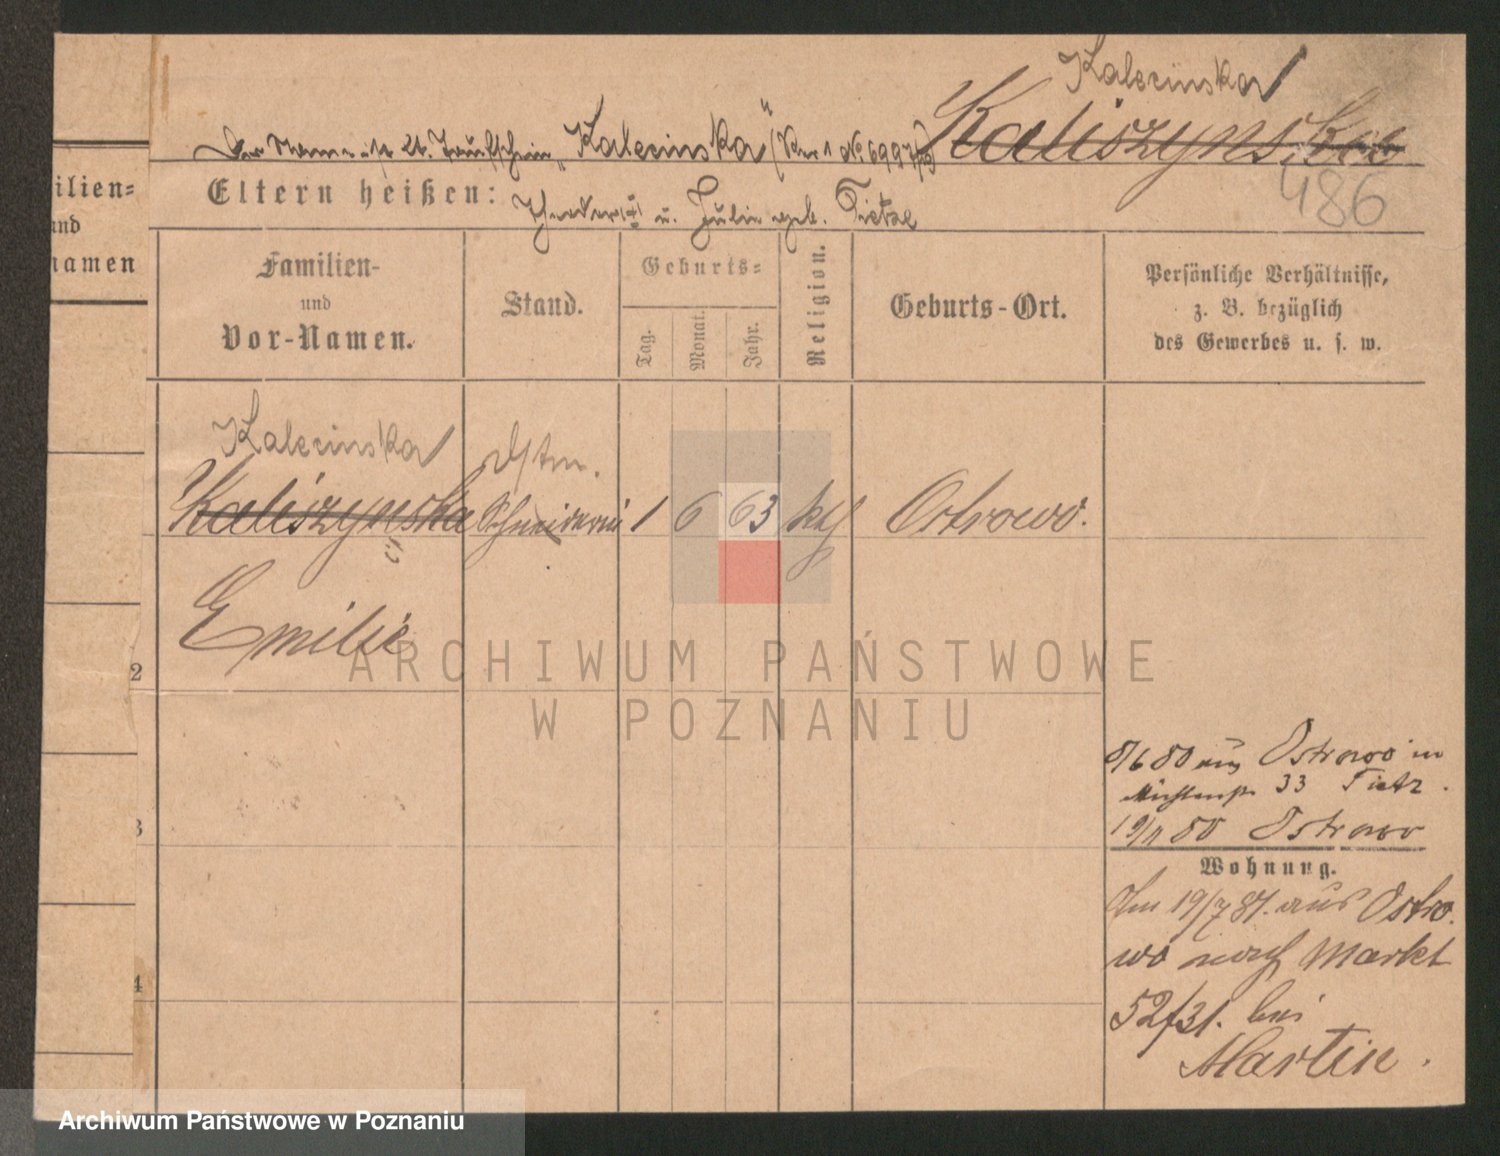 Kalecinska
Kaliszynska
Der Name ist lt. Taufschein „Kalecinska"
486
Eltern heißen:
Theodor u. Julie geb. Tietze
ilien=
und
namen
Familien-
und
Vor-Namen.
Stand.
Geburts=
Tag.
Monat.
Jahr.
Religion.
Geburts-Ort.
Persönliche Verhältnisse,
z. B. bezüglich
des Gewerbes u. s. w.
Kalecinska
Kaliszynska Schneiderin 1 6 63 kth Ostrowo.
Emilie
2
3
4
8/6 80 aus Ostrowo in
33 Tietz.
80 Ostrowo
Wohnung.
Am 19/7 87. aus Ostro
wo nach Markt
52/31. bei
Martin.
ARCHIWUM PAŃSTWOWE
W POZNANIU
Archiwum Państwowe w Poznaniu